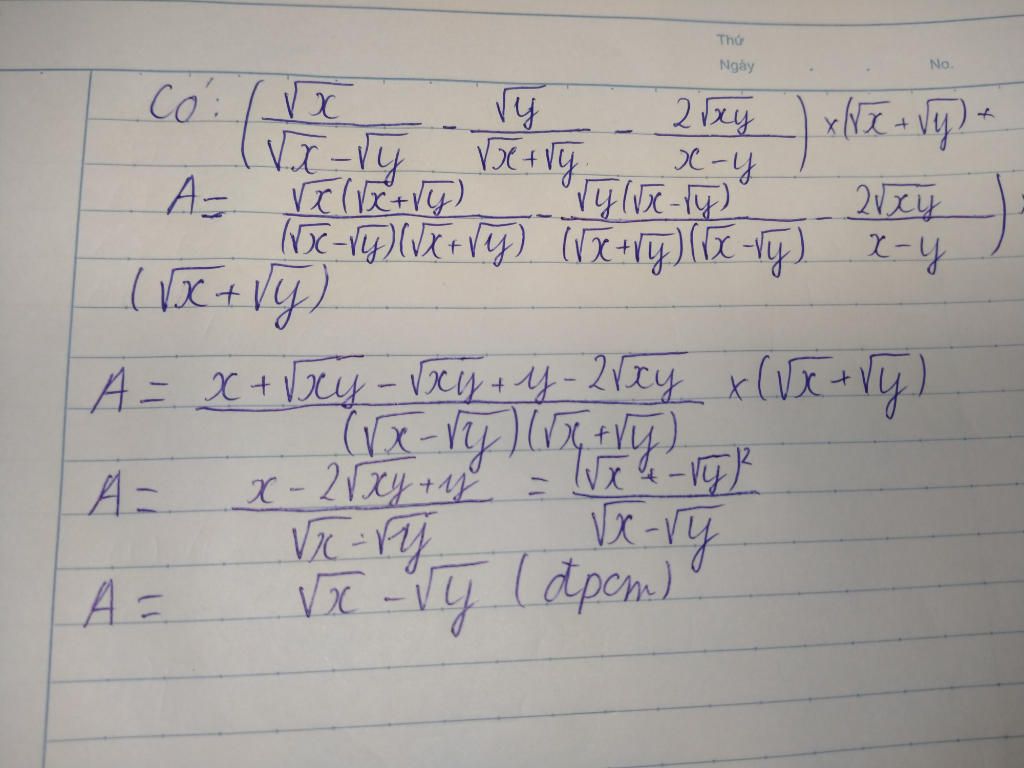 Thứ
Ngày . . No.
Có: (√x/(√x-√y) - √y/(√x+√y) - 2√xy/(x-y)) ×(√x+√y) +
A = √x(√x+√y)/((√x-√y)(√x+√y)) - √y(√x-√y)/((√x+√y)(√x-√y)) - 2√xy/(x-y)) ×
(√x+√y)
A = (x+√xy-√xy+y-2√xy)/((√x-√y)(√x+√y)) ×(√x+√y)
A = (x-2√xy+y)/(√x-√y) = (√x + -√y)²/(√x-√y)
A = √x-√y (đpcm)